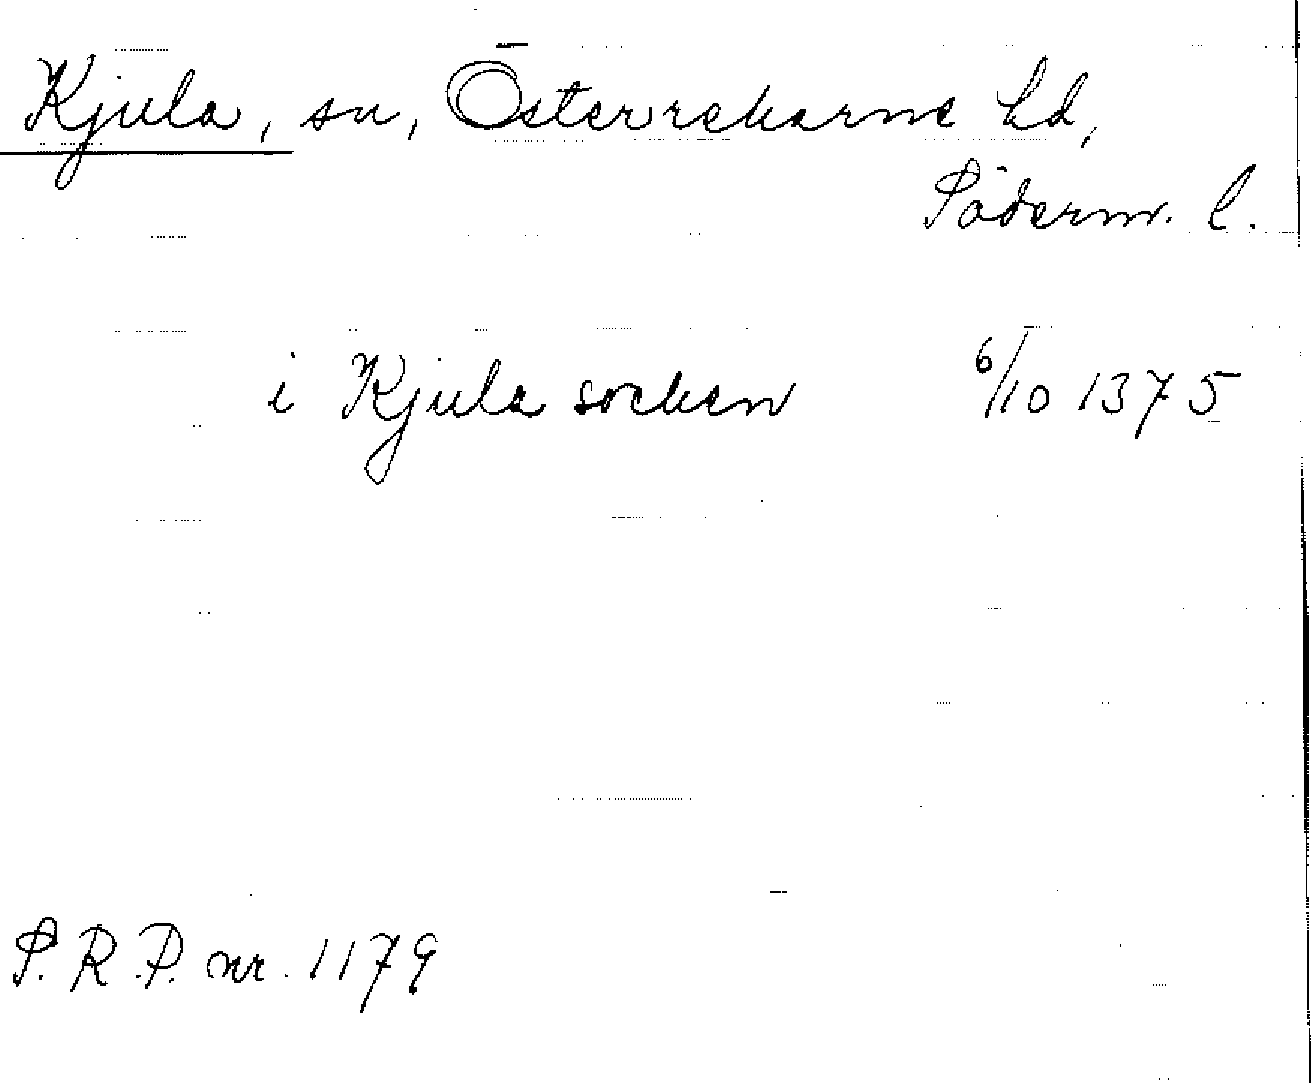 Kjula, sn, Österrekarne hd,
Söderm. l.
i Kjula socken 6/10 1375
S.R.P. nr. 1179